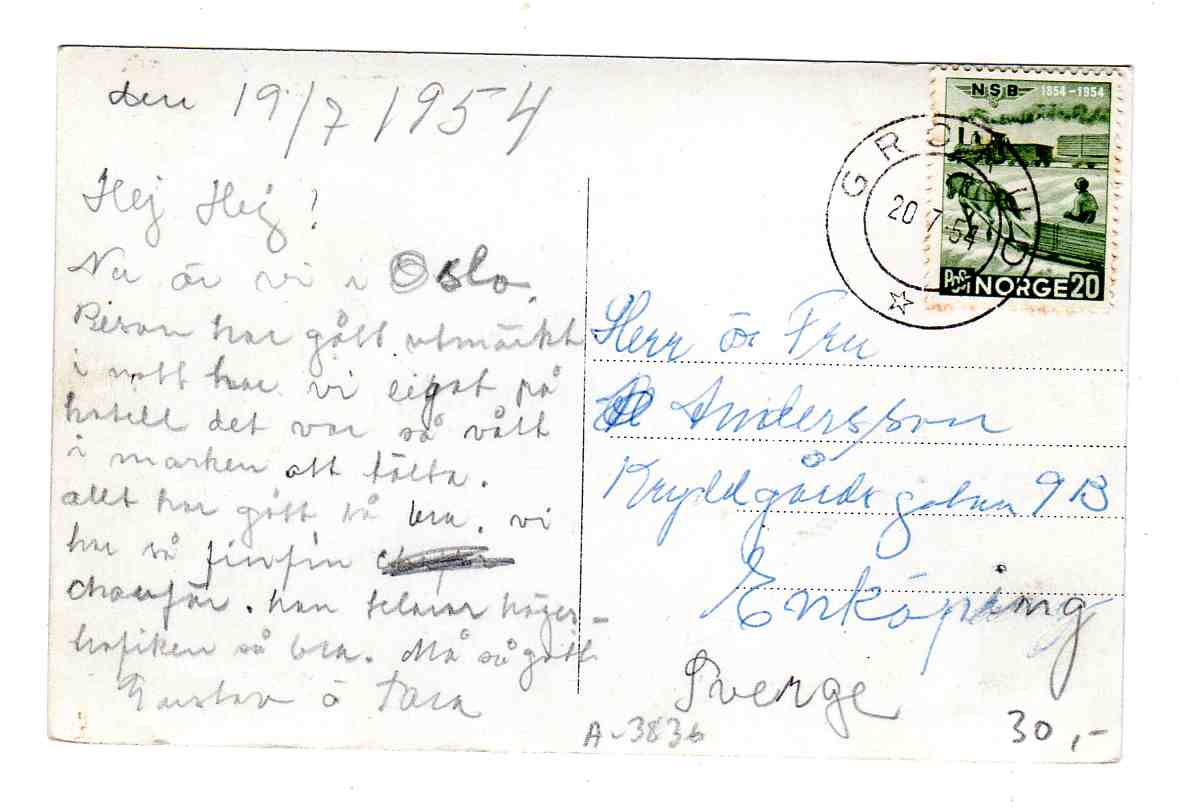 den 19/7 1954
Hej Hej!
Nu är vi i Oslo.
Resan har gått utmärkt
i natt har vi legat på
hotell det var så vått
i marken att tälta.
allt har gått så bra. vi
har så finfin
chaufför. han klarar höger-
trafiken så bra. Må så gott
Gustav o
NSB 1854-1954
POST NORGE 20
20 7 54
Herr o Fru
Andersson
Kryddgårdsgatan 9B
Enköping
Sverge
A-3836
30,-